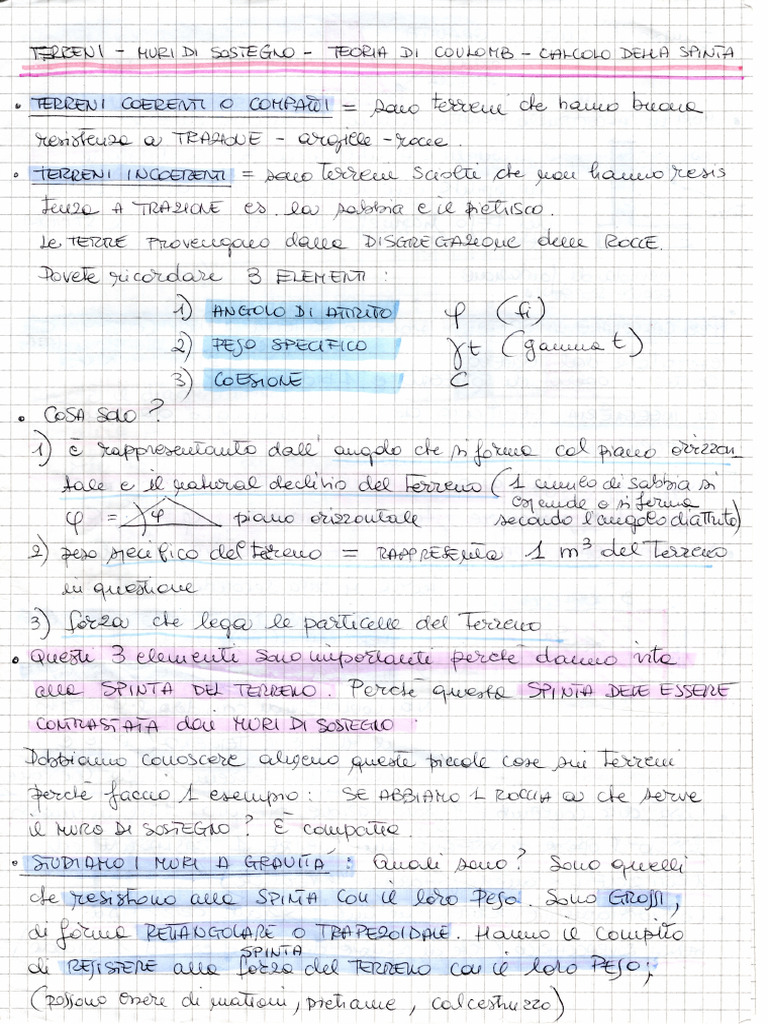 TERRENI - MURI DI SOSTEGNO - TEORIA DI COULOMB - CALCOLO DELLA SPINTA
• TERRENI COERENTI O COMPATTI = sono terreni che hanno buona
resistenza a TRAZIONE - argille - rocce.
• TERRENI INCOERENTI = sono terreni sciolti che non hanno resis
tenza A TRAZIONE es. la sabbia e il pietrisco.
Le TERRE PROVENGONO dalla DISGREGAZIONE delle ROCCE.
Dovete ricordare 3 ELEMENTI :
1) ANGOLO DI ATTRITO φ (fi)
2) PESO SPECIFICO γt (gamma t)
3) COESIONE C
• COSA SONO ?
1) è rappresentanto dall' angolo che si forma col piano orizzon_
tale e il natural declivio del Terreno ( 1 cumulo di sabbia si
espande o si ferma
φ = φ piano orizzontale secondo l'angolo d'attrito)
2) peso specifico del terreno = RAPPRESENTA 1 m³ del Terreno
in questione
3) forza che lega le particelle del Terreno
• Questi 3 elementi sono importanti perchè danno vita
alla SPINTA DEL TERRENO. Perchè questa SPINTA DEVE ESSERE
CONTRASTATA dai MURI DI SOSTEGNO.
Dobbiamo conoscere almeno queste piccole cose sui Terreni
perchè faccio 1 esempio : SE ABBIAMO 1 ROCCIA a che serve
il MURO DI SOSTEGNO ? È compatta.
• STUDIAMO I MURI A GRAVITÀ : Quali sono ? Sono quelli
che resistono alla SPINTA con il loro PESO. Sono GROSSI,
di forma RETTANGOLARE O TRAPEZOIDALE. Hanno il compito
SPINTA
di RESISTERE alla forza del TERRENO con il loro PESO;
(possono essere di mattoni, pietrame, calcestruzzo)